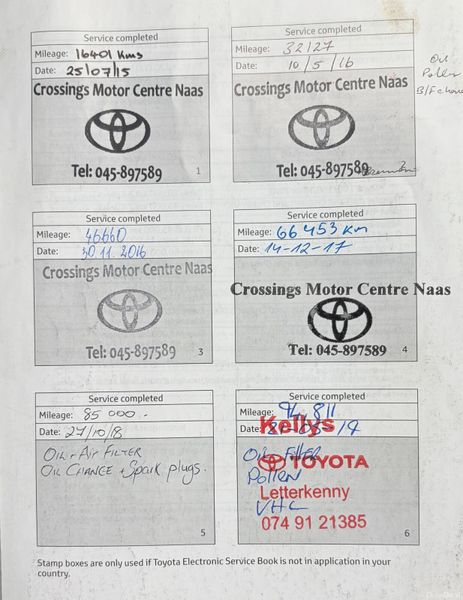 Service completed
Mileage: 16401 Kms
Date: 25/07/15
Crossings Motor Centre Naas
Tel: 045-897589
1
Service completed
Mileage: 32127
Date: 10/5/16
Crossings Motor Centre Naas
Tel: 045-897589
2
Oil
Pollen
Service completed
Mileage: 46660
Date: 30.11.2016
Crossings Motor Centre Naas
Tel: 045-897589
3
Service completed
Mileage: 66453 Km
Date: 14-12-17
Crossings Motor Centre Naas
Tel: 045-897589
4
Service completed
Mileage: 85000-
Date: 27/10/18
OIL + AIR FILTER
OIL CHANGE + Spark plugs.
5
Service completed
Mileage: 94,811
Date:
Kellys
OIL FILTER
TOYOTA
POLLEN
Letterkenny
VHC
074 91 21385
6
Stamp boxes are only used if Toyota Electronic Service Book is not in application in your
country.